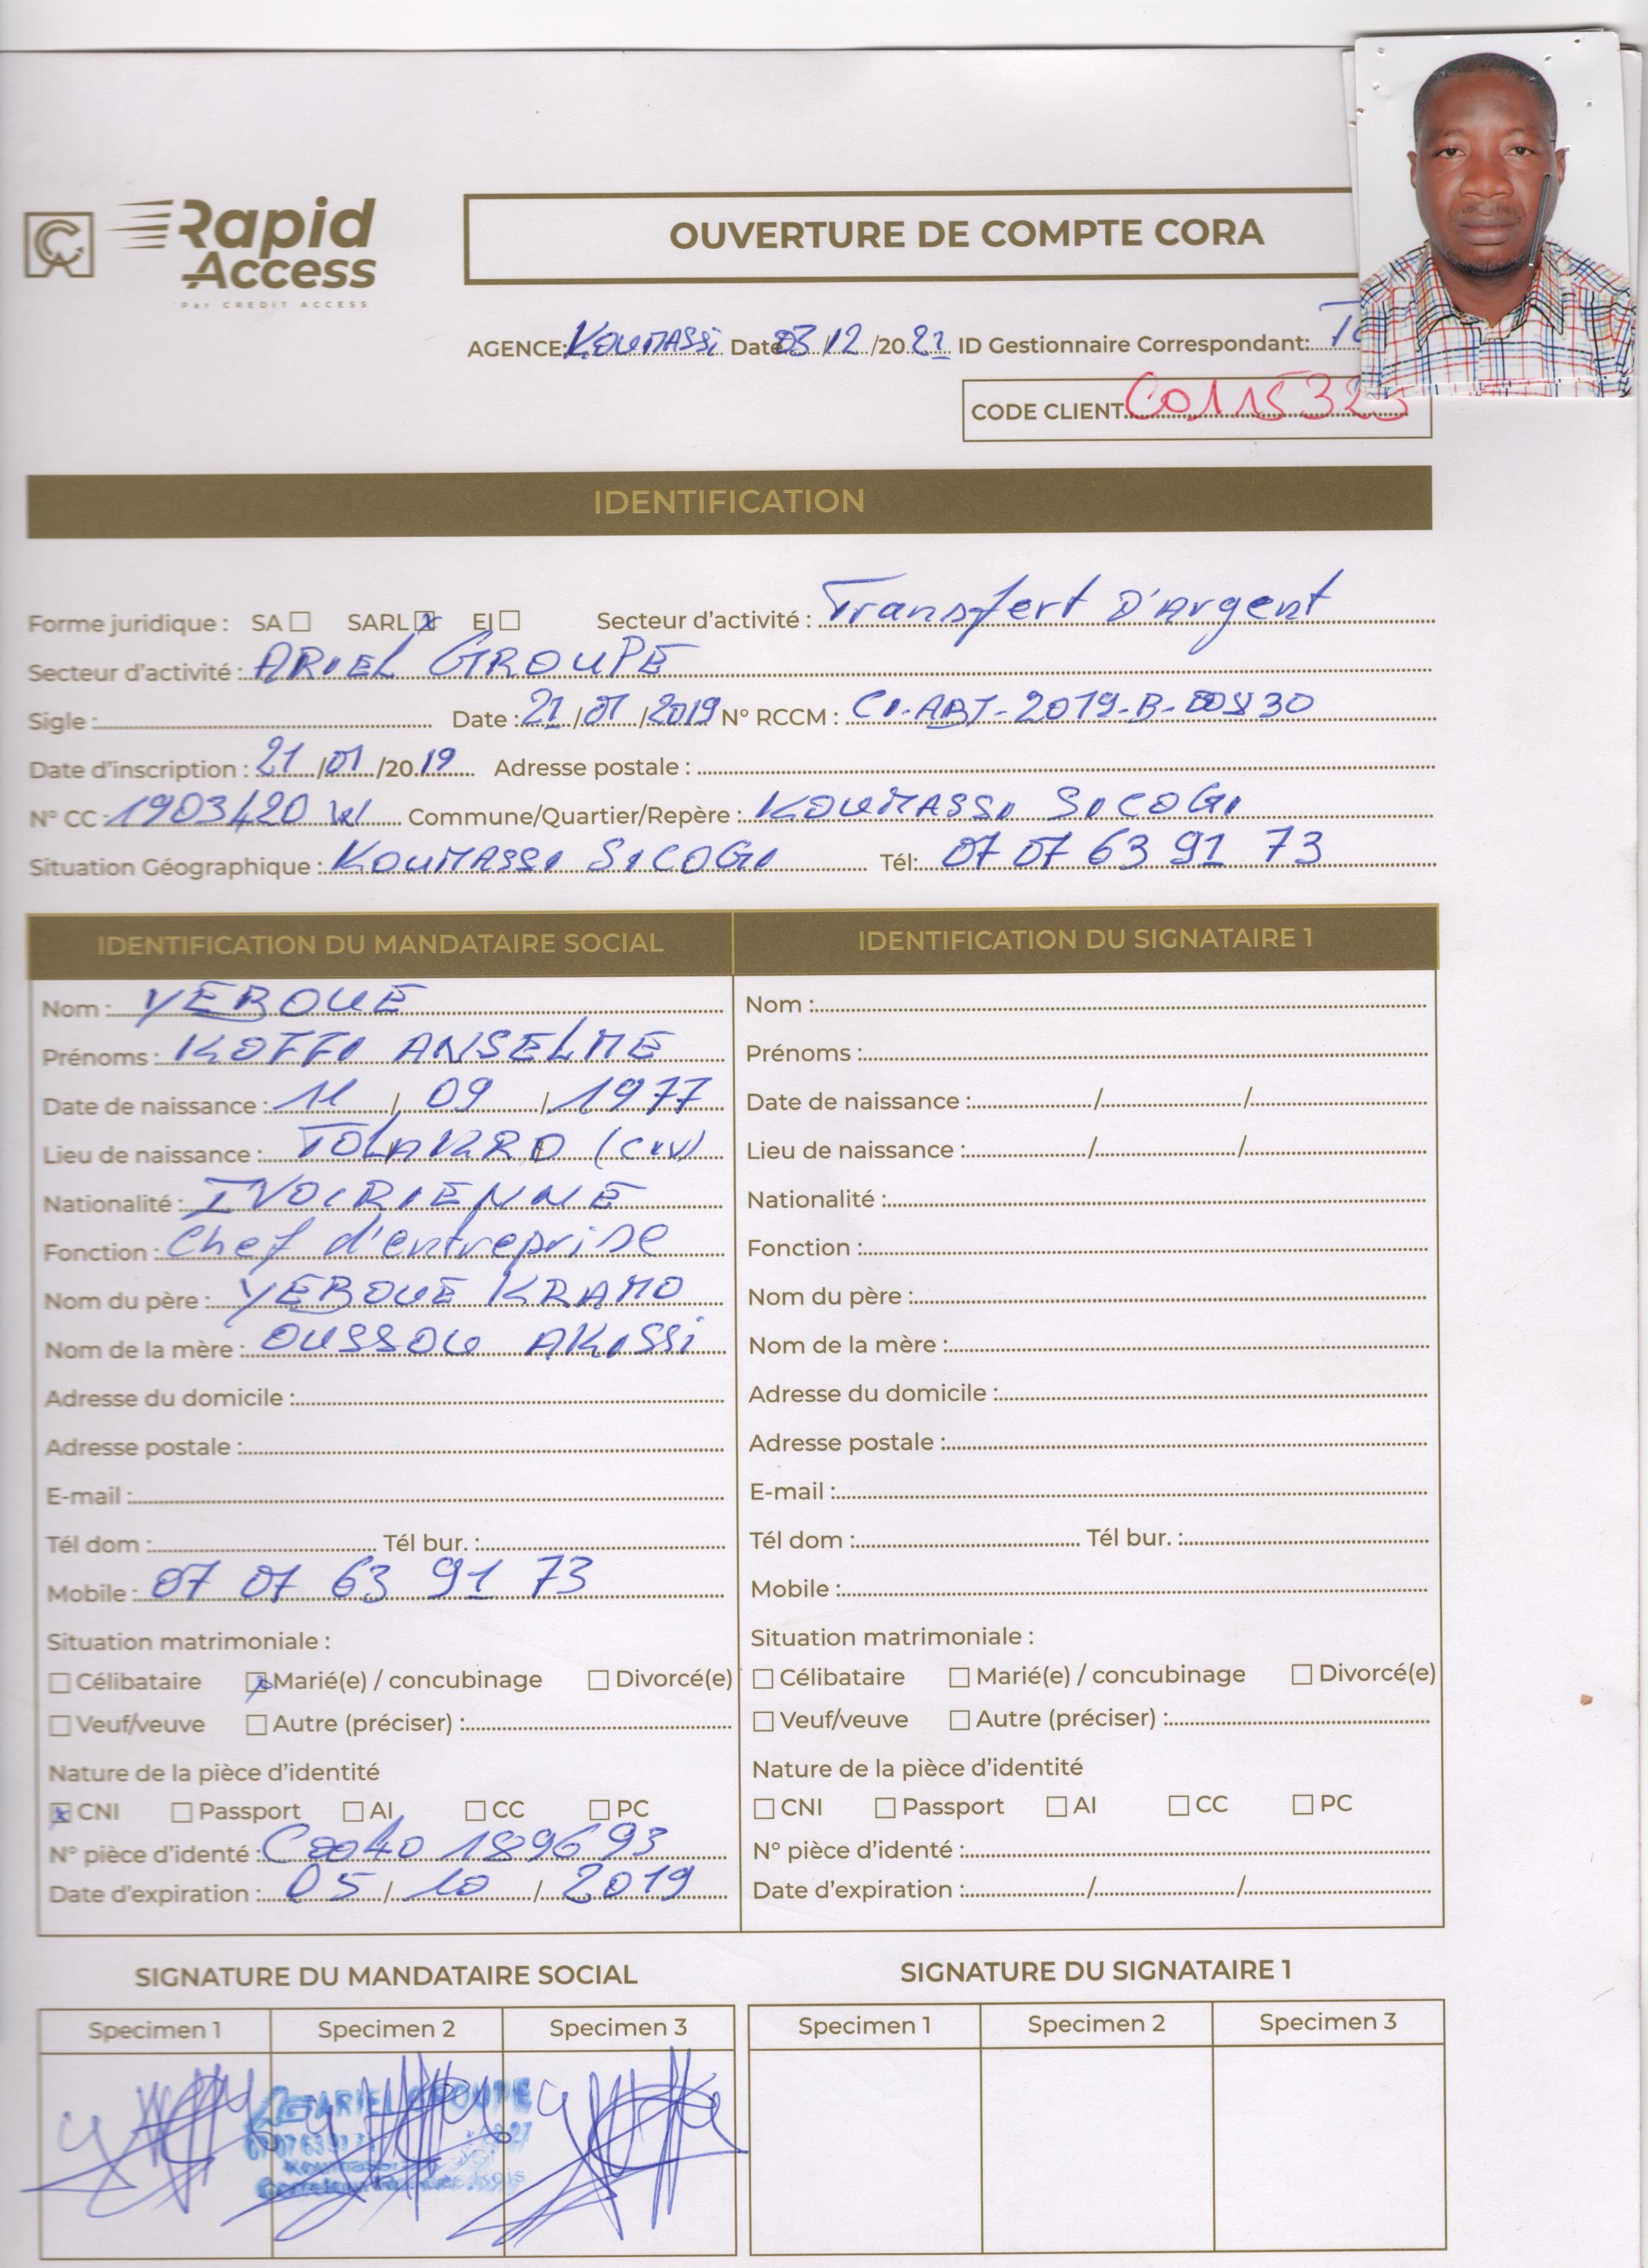 Rapid
Access
Par CREDIT ACCESS
OUVERTURE DE COMPTE CORA
AGENCE: KOUMASSI Date 03/12/2021 ID Gestionnaire Correspondant:
CODE CLIENT C0115323
IDENTIFICATION
Forme juridique : SA SARL EI Secteur d'activité : Transfert D'Argent
Secteur d'activité : ARIEL GROUPE
Sigle : Date : 21/01/2019 N° RCCM : CI-ABJ-2019-B-
Date d'inscription : 21/01/2019 Adresse postale :
N° CC : Commune/Quartier/Repère : KOUMASSI SICOGI
Situation Géographique : KOUMASSI SICOGI Tél: 07 07 63 91 73
IDENTIFICATION DU MANDATAIRE SOCIAL IDENTIFICATION DU SIGNATAIRE 1
Nom : YEBOUE Nom :
Prénoms : KOFFI ANSELME Prénoms :
Date de naissance : 11/09/1977 Date de naissance : / /
Lieu de naissance : TOLAKRO (CIV) Lieu de naissance : / /
Nationalité : IVOIRIENNE Nationalité :
Fonction : Chef d'entreprise Fonction :
Nom du père : YEBOUE KRAMO Nom du père :
Nom de la mère : OUSSOU AKISSI Nom de la mère :
Adresse du domicile : Adresse du domicile :
Adresse postale : Adresse postale :
E-mail : E-mail :
Tél dom : Tél bur. : Tél dom : Tél bur. :
Mobile : 07 07 63 91 73 Mobile :
Situation matrimoniale : Situation matrimoniale :
Célibataire Marié(e) / concubinage Divorcé(e) Célibataire Marié(e) / concubinage Divorcé(e)
Veuf/veuve Autre (préciser) : Veuf/veuve Autre (préciser) :
Nature de la pièce d'identité Nature de la pièce d'identité
CNI Passport AI CC PC CNI Passport AI CC PC
N° pièce d'identé : C0040 1896 93 N° pièce d'identé :
Date d'expiration : 05/10/2019 Date d'expiration : / /
SIGNATURE DU MANDATAIRE SOCIAL SIGNATURE DU SIGNATAIRE 1
Specimen 1 Specimen 2 Specimen 3 Specimen 1 Specimen 2 Specimen 3
ARIEL GROUPE